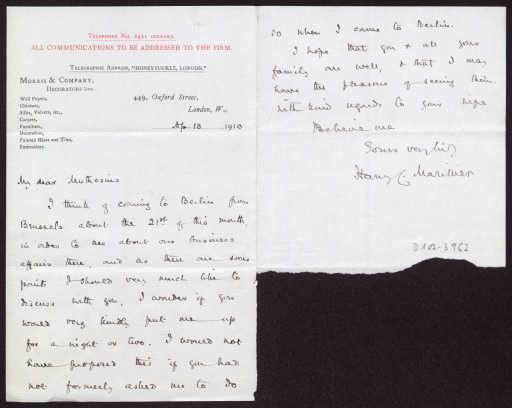 Telephone No. 2431 Gerrard.
ALL COMMUNICATIONS TO BE ADDRESSED TO THE FIRM.
Telegraphic Address, "HONEYSUCKLE, LONDON."
Morris & Company,
Decorators Ltd.
Wall Papers,
Chintzes,
Silks, Velvets, &c.,
Carpets,
Furniture,
Decoration,
Painted Glass and Tiles,
Embroidery.
449, Oxford Street,
London, W.,
Ap. 18 1910
My dear Muthesius
I think of coming to Berlin from
Brussels about the 21st of this month
in order to see about our business
affairs there, and as there are some
points I should very much like to
discuss with you, I wonder if you
would very kindly put me up
for a night or two. I would not
have proposed this if you had
not formerly asked me to do
so when I came to Berlin.
I hope that you & all your
family are well, & that I may
have the pleasure of seeing them.
With kind regards to your wife
Believe me
Yours very truly
Harry C Marillier
D 102-3962